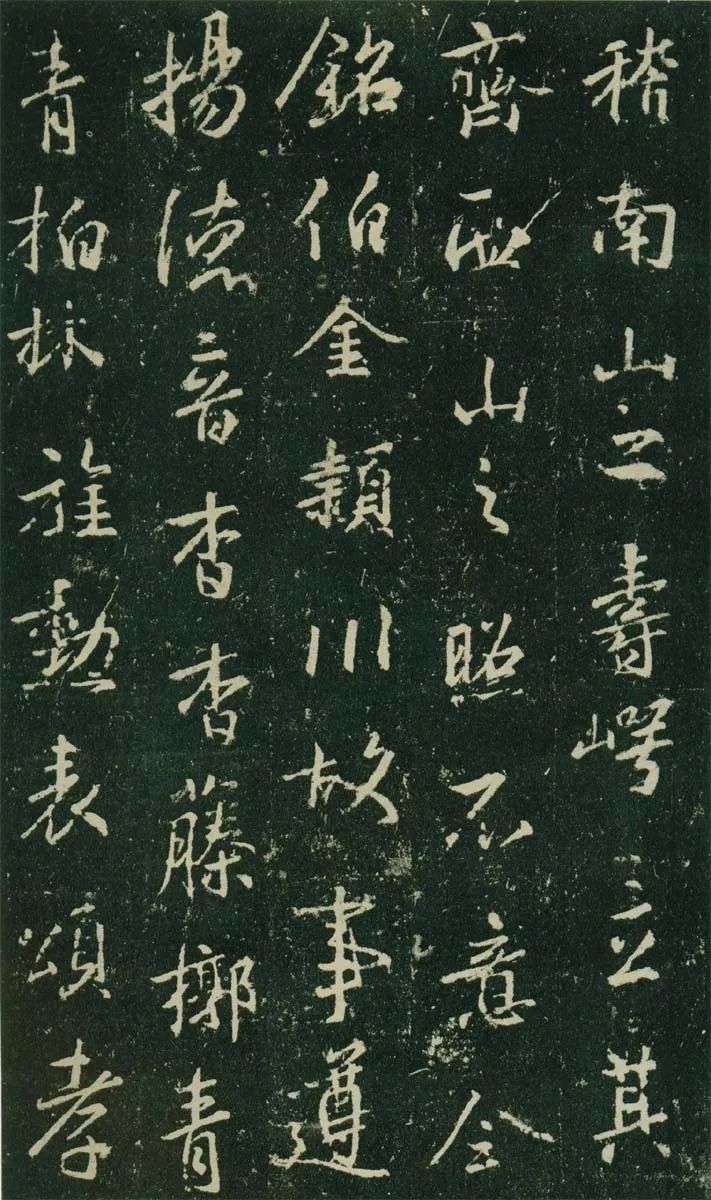 稽南山之壽崿立其
齊西山之照不意
銘伯金頴川故事遵
揚德音杳杳藤槨青
青柏林旌勳表頌孝